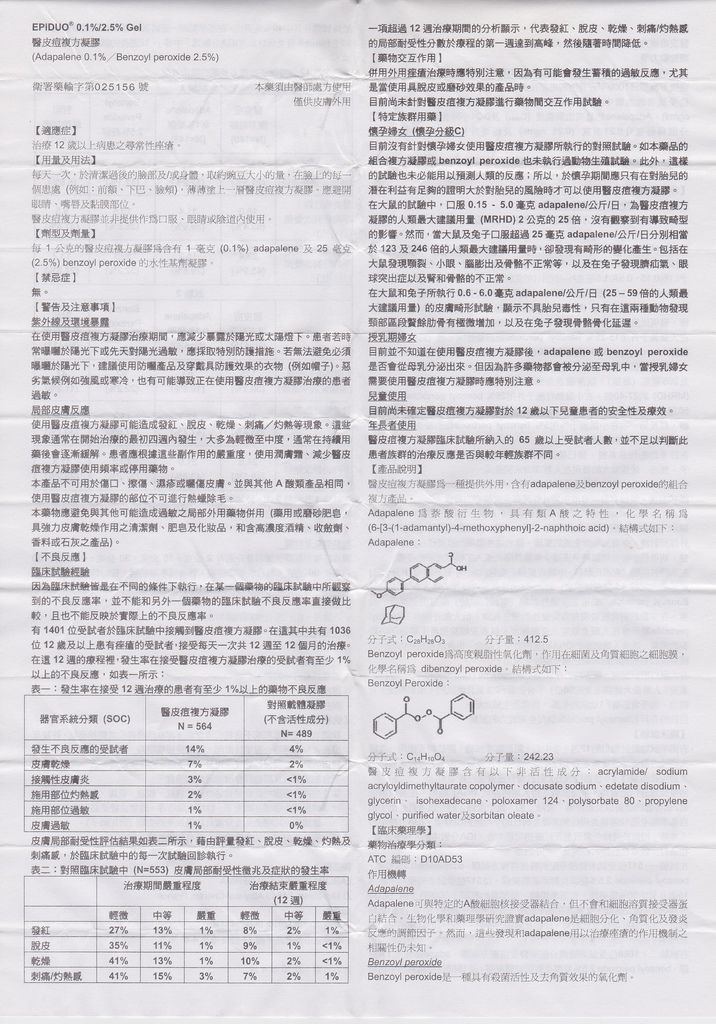 EPIDUO® 0.1%/2.5% Gel
醫皮痘複方凝膠
(Adapalene 0.1%／Benzoyl peroxide 2.5%)
衛署藥輸字第025156 號
本藥須由醫師處方使用
僅供皮膚外用
【適應症】
治療 12 歲以上病患之尋常性痤瘡。
【用量及用法】
每天一次，於清潔過後的臉部及/或身體，取約豌豆大小的量，在臉上的每一
個患處 (例如：前額、下巴、臉頰)，薄薄塗上一層醫皮痘複方凝膠。應避開
眼睛、嘴唇及黏膜部位。
醫皮痘複方凝膠並非提供作為口服、眼睛或陰道內使用。
【劑型及劑量】
每 1 公克的醫皮痘複方凝膠為含有 1 毫克 (0.1%) adapalene 及 25 毫克
(2.5%) benzoyl peroxide 的水性基劑凝膠。
【禁忌症】
無。
【警告及注意事項】
紫外線及環境暴露
在使用醫皮痘複方凝膠治療期間，應減少暴露於陽光或太陽燈下。患者若時
常曝曬於陽光下或先天對陽光過敏，應採取特別防護措施。若無法避免必須
曝曬於陽光下，建議使用防曬產品及穿戴具防護效果的衣物 (例如帽子)。惡
劣氣候例如強風或寒冷，也有可能導致正在使用醫皮痘複方凝膠治療的患者
過敏。
局部皮膚反應
使用醫皮痘複方凝膠可能造成發紅、脫皮、乾燥、刺痛／灼熱等現象。這些
現象通常在開始治療的最初四週內發生，大多為輕微至中度，通常在持續用
藥後會逐漸緩解。患者應根據這些副作用的嚴重度，使用潤膚霜、減少醫皮
痘複方凝膠使用頻率或停用藥物。
本產品不可用於傷口、擦傷、濕疹或曬傷皮膚。並與其他 A 酸類產品相同，
使用醫皮痘複方凝膠的部位不可進行熱蠟除毛。
本藥物應避免與其他可能造成過敏之局部外用藥物併用 (藥用或磨砂肥皂，
具強力皮膚乾燥作用之清潔劑、肥皂及化妝品，和含高濃度酒精、收斂劑、
香料或石灰之產品)。
【不良反應】
臨床試驗經驗
因為臨床試驗皆是在不同的條件下執行，在某一個藥物的臨床試驗中所觀察
到的不良反應率，並不能和另外一個藥物的臨床試驗不良反應率直接做比
較，且也不能反映於實際上的不良反應率。
有 1401 位受試者於臨床試驗中接觸到醫皮痘複方凝膠。在這其中共有 1036
位 12 歲及以上患有痤瘡的受試者，接受每天一次共 12 週至 12 個月的治療。
在這 12 週的療程裡，發生率在接受醫皮痘複方凝膠治療的受試者有至少 1%
以上的不良反應，如表一所示：
表一：發生率在接受 12 週治療的患者有至少 1%以上的藥物不良反應
器官系統分類 (SOC) 醫皮痘複方凝膠 N = 564 對照載體凝膠 (不含活性成分) N= 489
發生不良反應的受試者 14% 4%
皮膚乾燥 7% 2%
接觸性皮膚炎 3% <1%
施用部位灼熱感 2% <1%
施用部位過敏 1% <1%
皮膚過敏 1% 0%
皮膚局部耐受性評估結果如表二所示，藉由評量發紅、脫皮、乾燥、灼熱及
刺痛感，於臨床試驗中的每一次試驗回診執行。
表二：對照臨床試驗中 (N=553) 皮膚局部耐受性徵兆及症狀的發生率
治療期間嚴重程度 治療結束嚴重程度 (12 週)
輕微 中等 嚴重 輕微 中等 嚴重
發紅 27% 13% 1% 8% 2% 1%
脫皮 35% 11% 1% 9% 1% <1%
乾燥 41% 13% 1% 10% 2% <1%
刺痛/灼熱感 41% 15% 3% 7% 2% 1%
一項超過 12 週治療期間的分析顯示，代表發紅、脫皮、乾燥、刺痛/灼熱感
的局部耐受性分數於療程的第一週達到高峰，然後隨著時間降低。
【藥物交互作用】
併用外用痤瘡治療時應特別注意，因為有可能會發生蓄積的過敏反應，尤其
是當使用具脫皮或磨砂效果的產品時。
目前尚未針對醫皮痘複方凝膠進行藥物間交互作用試驗。
【特定族群用藥】
懷孕婦女 (懷孕分級C)
目前沒有針對懷孕婦女使用醫皮痘複方凝膠所執行的對照試驗。如本藥品的
組合複方凝膠或 benzoyl peroxide 也未執行過動物生殖試驗。此外，這樣
的試驗也未必能用以預測人類的反應；所以，於懷孕期間應只有在對胎兒的
潛在利益有足夠的證明大於對胎兒的風險時才可以使用醫皮痘複方凝膠。
在大鼠的試驗中，口服 0.15 - 5.0 毫克 adapalene/公斤/日，為醫皮痘複方
凝膠的人類最大建議用量 (MRHD) 2 公克的 25 倍，沒有觀察到有導致畸型
的影響。然而，當大鼠及兔子口服超過 25 毫克 adapalene/公斤/日分別相當
於 123 及 246 倍的人類最大建議用量時，卻發現有畸形的變化產生。包括在
大鼠發現顎裂、小眼、腦膨出及骨骼不正常等，以及在兔子發現臍疝氣、眼
球突出症以及腎和骨骼的不正常。
在大鼠和兔子所執行 0.6 - 6.0 毫克 adapalene/公斤/日 (25－59倍的人類最
大建議用量) 的皮膚畸形試驗，顯示不具胎兒毒性，只有在這兩種動物發現
頸部區段贅餘肋骨有極微增加，以及在兔子發現骨骼骨化延遲。
授乳期婦女
目前並不知道在使用醫皮痘複方凝膠後，adapalene 或 benzoyl peroxide
是否會從母乳分泌出來。但因為許多藥物都會被分泌至母乳中，當授乳婦女
需要使用醫皮痘複方凝膠時應特別注意。
兒童使用
目前尚未確定醫皮痘複方凝膠對於 12 歲以下兒童患者的安全性及療效。
年長者使用
醫皮痘複方凝膠臨床試驗所納入的 65 歲以上受試者人數，並不足以判斷此
患者族群的治療反應是否與較年輕族群不同。
【產品說明】
醫皮痘複方凝膠為一種提供外用，含有adapalene及benzoyl peroxide的組合
複方產品。
Adapalene 為萘酸衍生物，具有類A酸之特性，化學名稱為
(6-[3-(1-adamantyl)-4-methoxyphenyl]-2-naphthoic acid)。結構式如下：
Adapalene：
O
OH
O
分子式：C28H28O3 分子量：412.5
Benzoyl peroxide為高度親脂性氧化劑，作用在細菌及角質細胞之細胞膜，
化學名稱為 dibenzoyl peroxide。結構式如下：
Benzoyl Peroxide：
O
O
O
O
分子式：C14H10O4 分子量：242.23
醫皮痘複方凝膠含有以下非活性成分：acrylamide/ sodium
acryloyldimethyltaurate copolymer、docusate sodium、edetate disodium、
glycerin、isohexadecane、poloxamer 124、polysorbate 80、propylene
glycol、purified water及sorbitan oleate。
【臨床藥理學】
藥物治療學分類：
ATC 編碼：D10AD53
作用機轉
Adapalene
Adapalene可與特定的A酸細胞核接受器結合，但不會和細胞溶質接受器蛋
白結合。生物化學和藥理學研究證實adapalene是細胞分化、角質化及發炎
反應的調節因子。然而，這些發現和adapalene用以治療痤瘡的作用機制之
相關性仍未知。
Benzoyl peroxide
Benzoyl peroxide是一種具有殺菌活性及去角質效果的氧化劑。